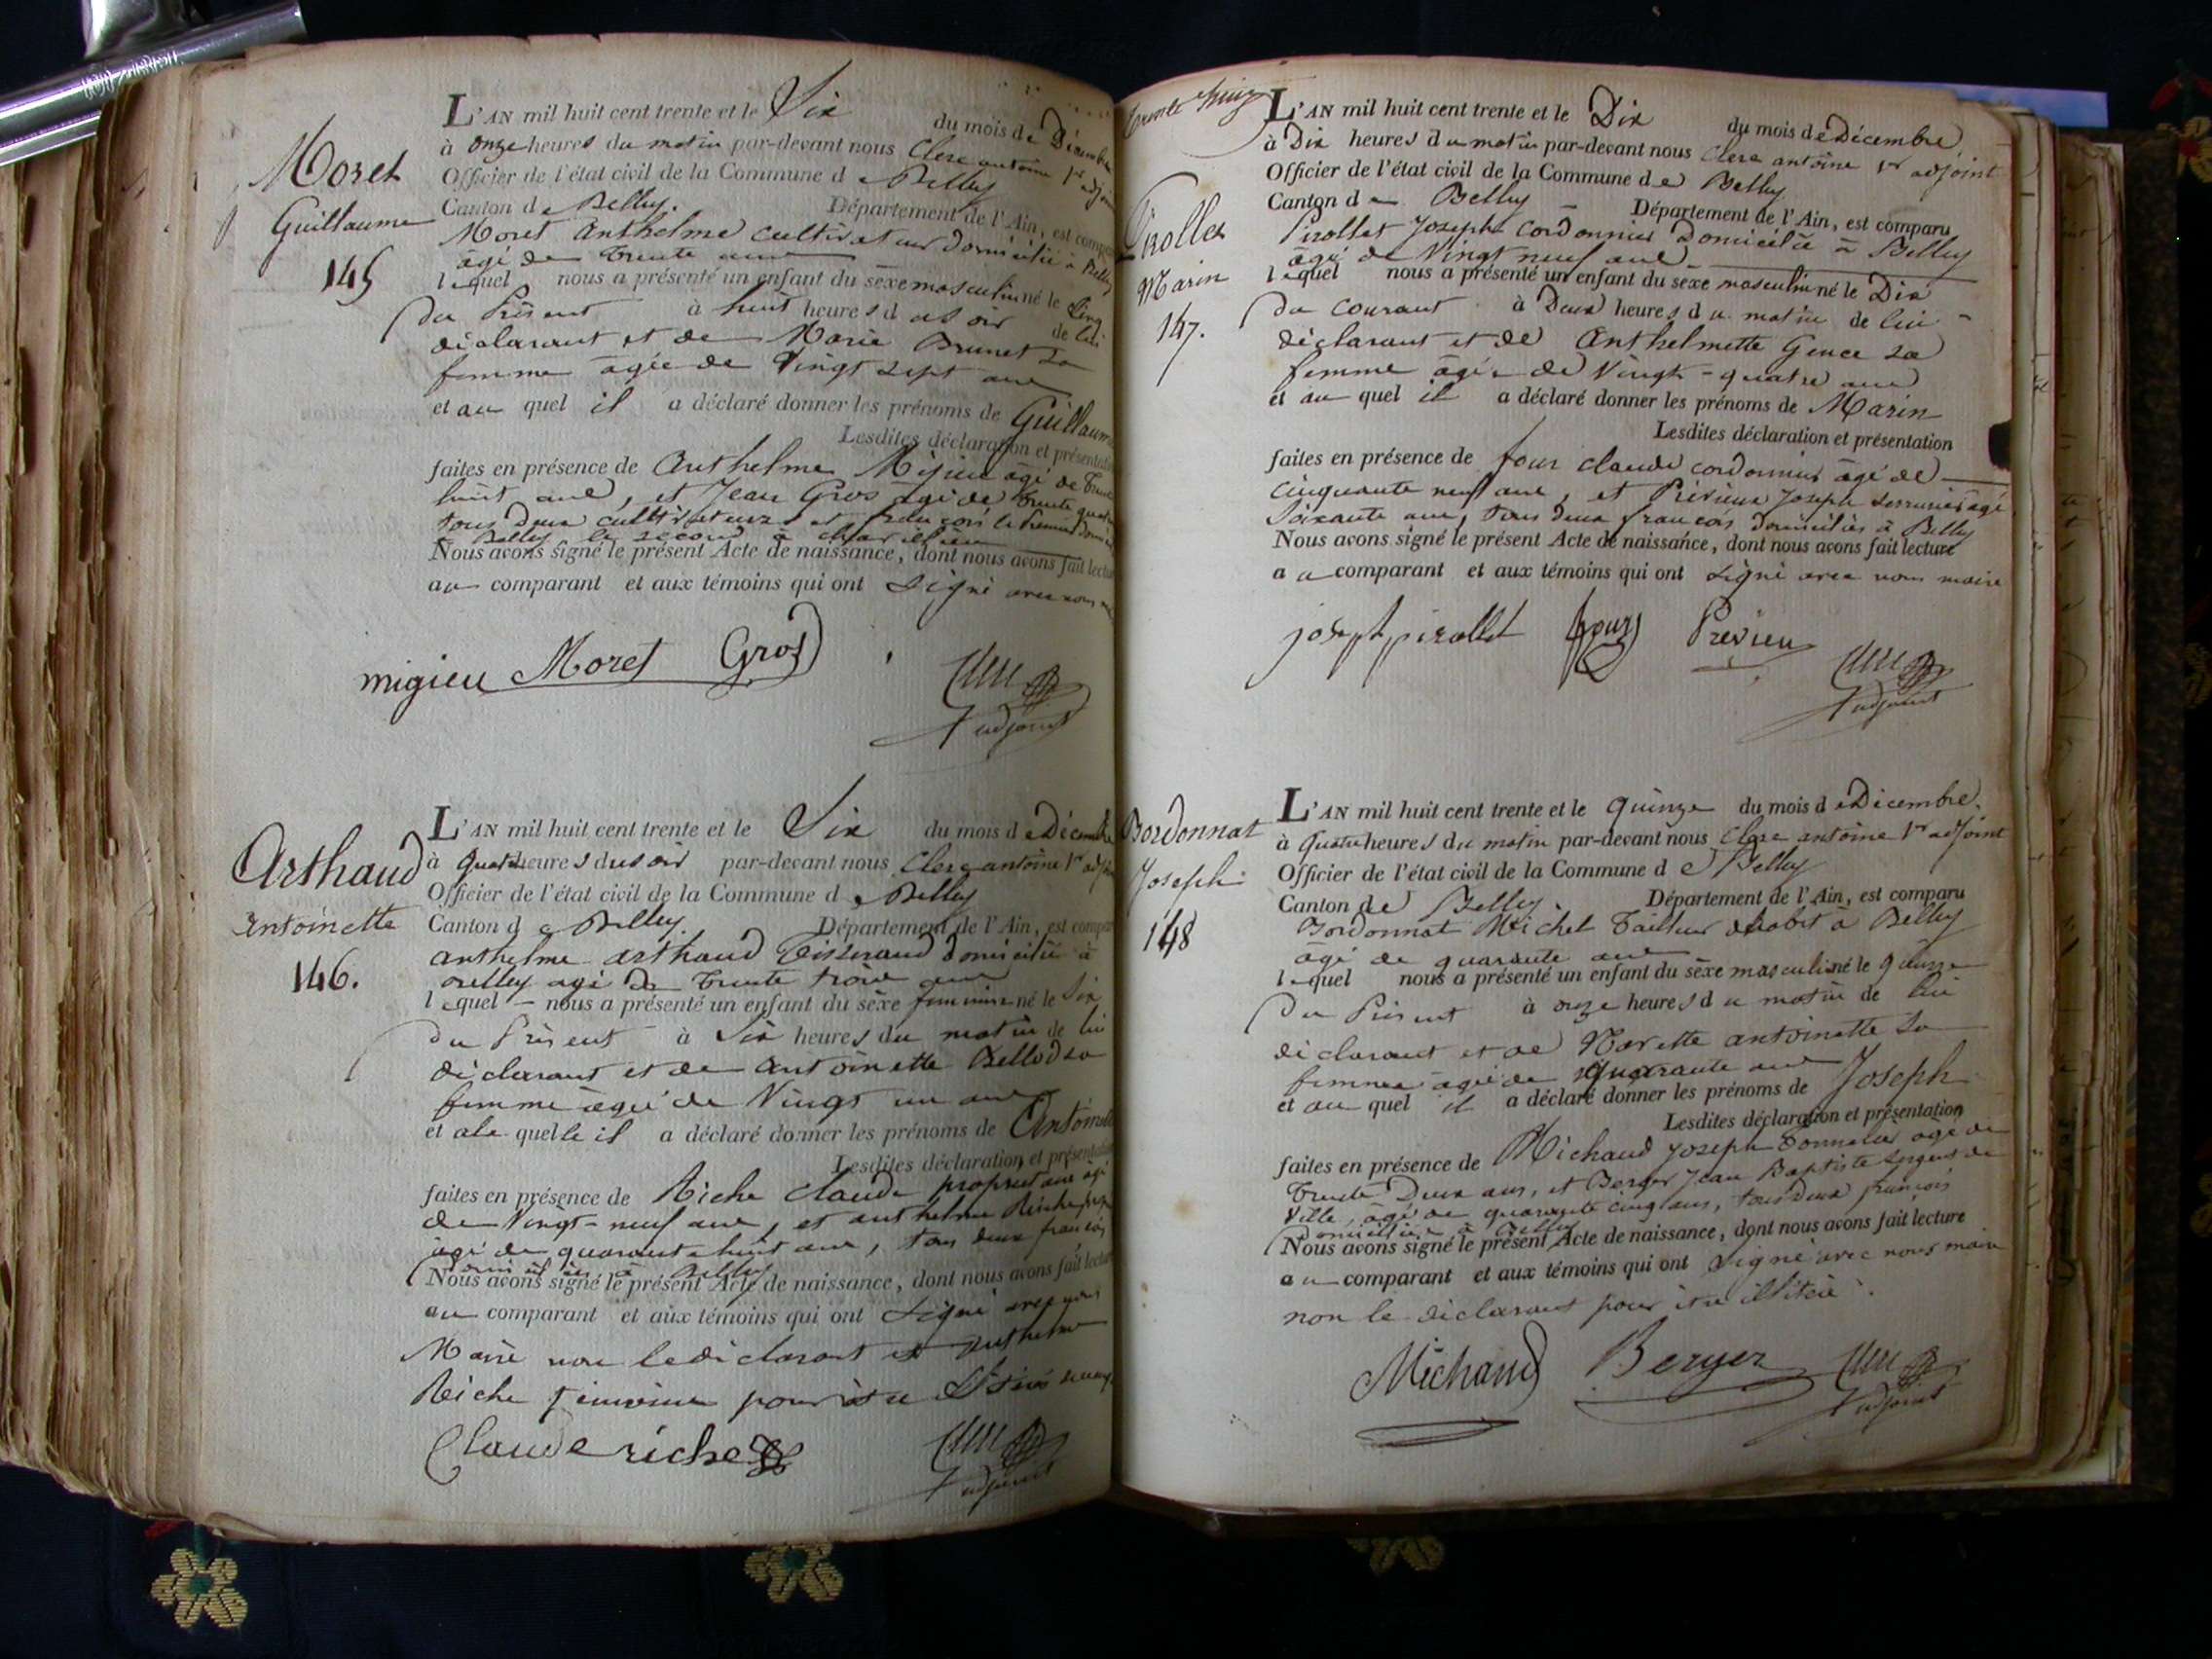 Moret
Guillaume
145
L'AN mil huit cent trente et le Six du mois de Décembre
à onze heures du matin par-devant nous Clerc antoine 1er adjoint
Officier de l'état civil de la Commune de Belley
Canton de Belley. Département de l'Ain, est comparu
Moret Anthelme cultivateur domicilié à Belley
âgé de trente ans
lequel nous a présenté un enfant du sèxe masculin né le Cinq
du Présent à huit heures du soir de lui
déclarant et de Marie Brunet sa
femme âgée de Vingt sept ans
et au quel il a déclaré donner les prénoms de Guillaume
Lesdites déclaration et présentation
faites en présence de Anthelme Migieu âgé de trente
huit ans, et Jean Gros âgé de trente quatre
tous deux cultivateurs et français le premier domicilié
à Belley le second à
Nous avons signé le présent Acte de naissance, dont nous avons fait lecture
au comparant et aux témoins qui ont signé avec nous
migieu Moret Gros
Clerc
adjoint
Arthaud
Antoinette
146.
L'AN mil huit cent trente et le Six du mois de Décembre
à quatre heures du soir par-devant nous Clerc antoine 1er adjoint
Officier de l'état civil de la Commune de Belley
Canton de Belley. Département de l'Ain, est comparu
anthelme arthaud Tisserand domicilié à
Belley âgé de trente trois ans
lequel nous a présenté un enfant du sèxe feminin né le Six
du Présent à Six heures du matin de lui
déclarant et de Antoinette Bellod sa
femme âgée de Vingt un ans
et a la quelle il a déclaré donner les prénoms de Antoinette
Lesdites déclaration et présentation
faites en présence de Riche claude propriétaire âgé
de Vingt-neuf ans, et anthelme Riche
âgé de quarante huit ans, tous deux français
domiciliés à Belley
Nous avons signé le présent Acte de naissance, dont nous avons fait lecture
au comparant et aux témoins qui ont signé avec nous
Maire non le déclarant et anthelme
Riche témoin pour être
Claude riche
Clerc
adjoint
Pirollet
Marin
147.
L'AN mil huit cent trente et le Dix du mois de Décembre
à Dix heures du matin par-devant nous Clerc antoine 1er adjoint
Officier de l'état civil de la Commune de Belley
Canton de Belley Département de l'Ain, est comparu
Pirollet Joseph cordonnier domicilié à Belley
âgé de Vingt neuf ans
lequel nous a présenté un enfant du sèxe masculin né le Dix
du courant à Deux heures du matin de lui
déclarant et de Anthelmette Gence sa
femme âgée de Vingt-quatre ans
et au quel il a déclaré donner les prénoms de Marin
Lesdites déclaration et présentation
faites en présence de four claude cordonnier âgé de
cinquante neuf ans, et Prévieux Joseph serrurier âgé
soixante ans, tous deux français domiciliés à Belley
Nous avons signé le présent Acte de naissance, dont nous avons fait lecture
au comparant et aux témoins qui ont signé avec nous maire
joseph pirollet four Prévieu
Clerc
adjoint
Bordonnat
Joseph
148
L'AN mil huit cent trente et le Quinze du mois de Décembre.
à quatre heures du matin par-devant nous Clerc antoine 1er adjoint
Officier de l'état civil de la Commune de Belley
Canton de Belley. Département de l'Ain, est comparu
Bordonnat Michel Tailleur d'habit à Belley
âgé de quarante ans
lequel nous a présenté un enfant du sèxe masculin né le quinze
du Présent à onze heures du matin de lui
déclarant et de Mariette antoinette sa
femme âgée de quarante ans
et au quel il a déclaré donner les prénoms de Joseph
Lesdites déclaration et présentation
faites en présence de Michaud Joseph Tonnelier âgé de
trente Deux ans, et Berger Jean Baptiste sergent de
Ville, âgé de quarante cinq ans, tous deux français
domiciliés à Belley
Nous avons signé le présent Acte de naissance, dont nous avons fait lecture
au comparant et aux témoins qui ont signé avec nous maire
non le déclarant pour être illitéré.
Michaud Berger
Clerc
adjoint